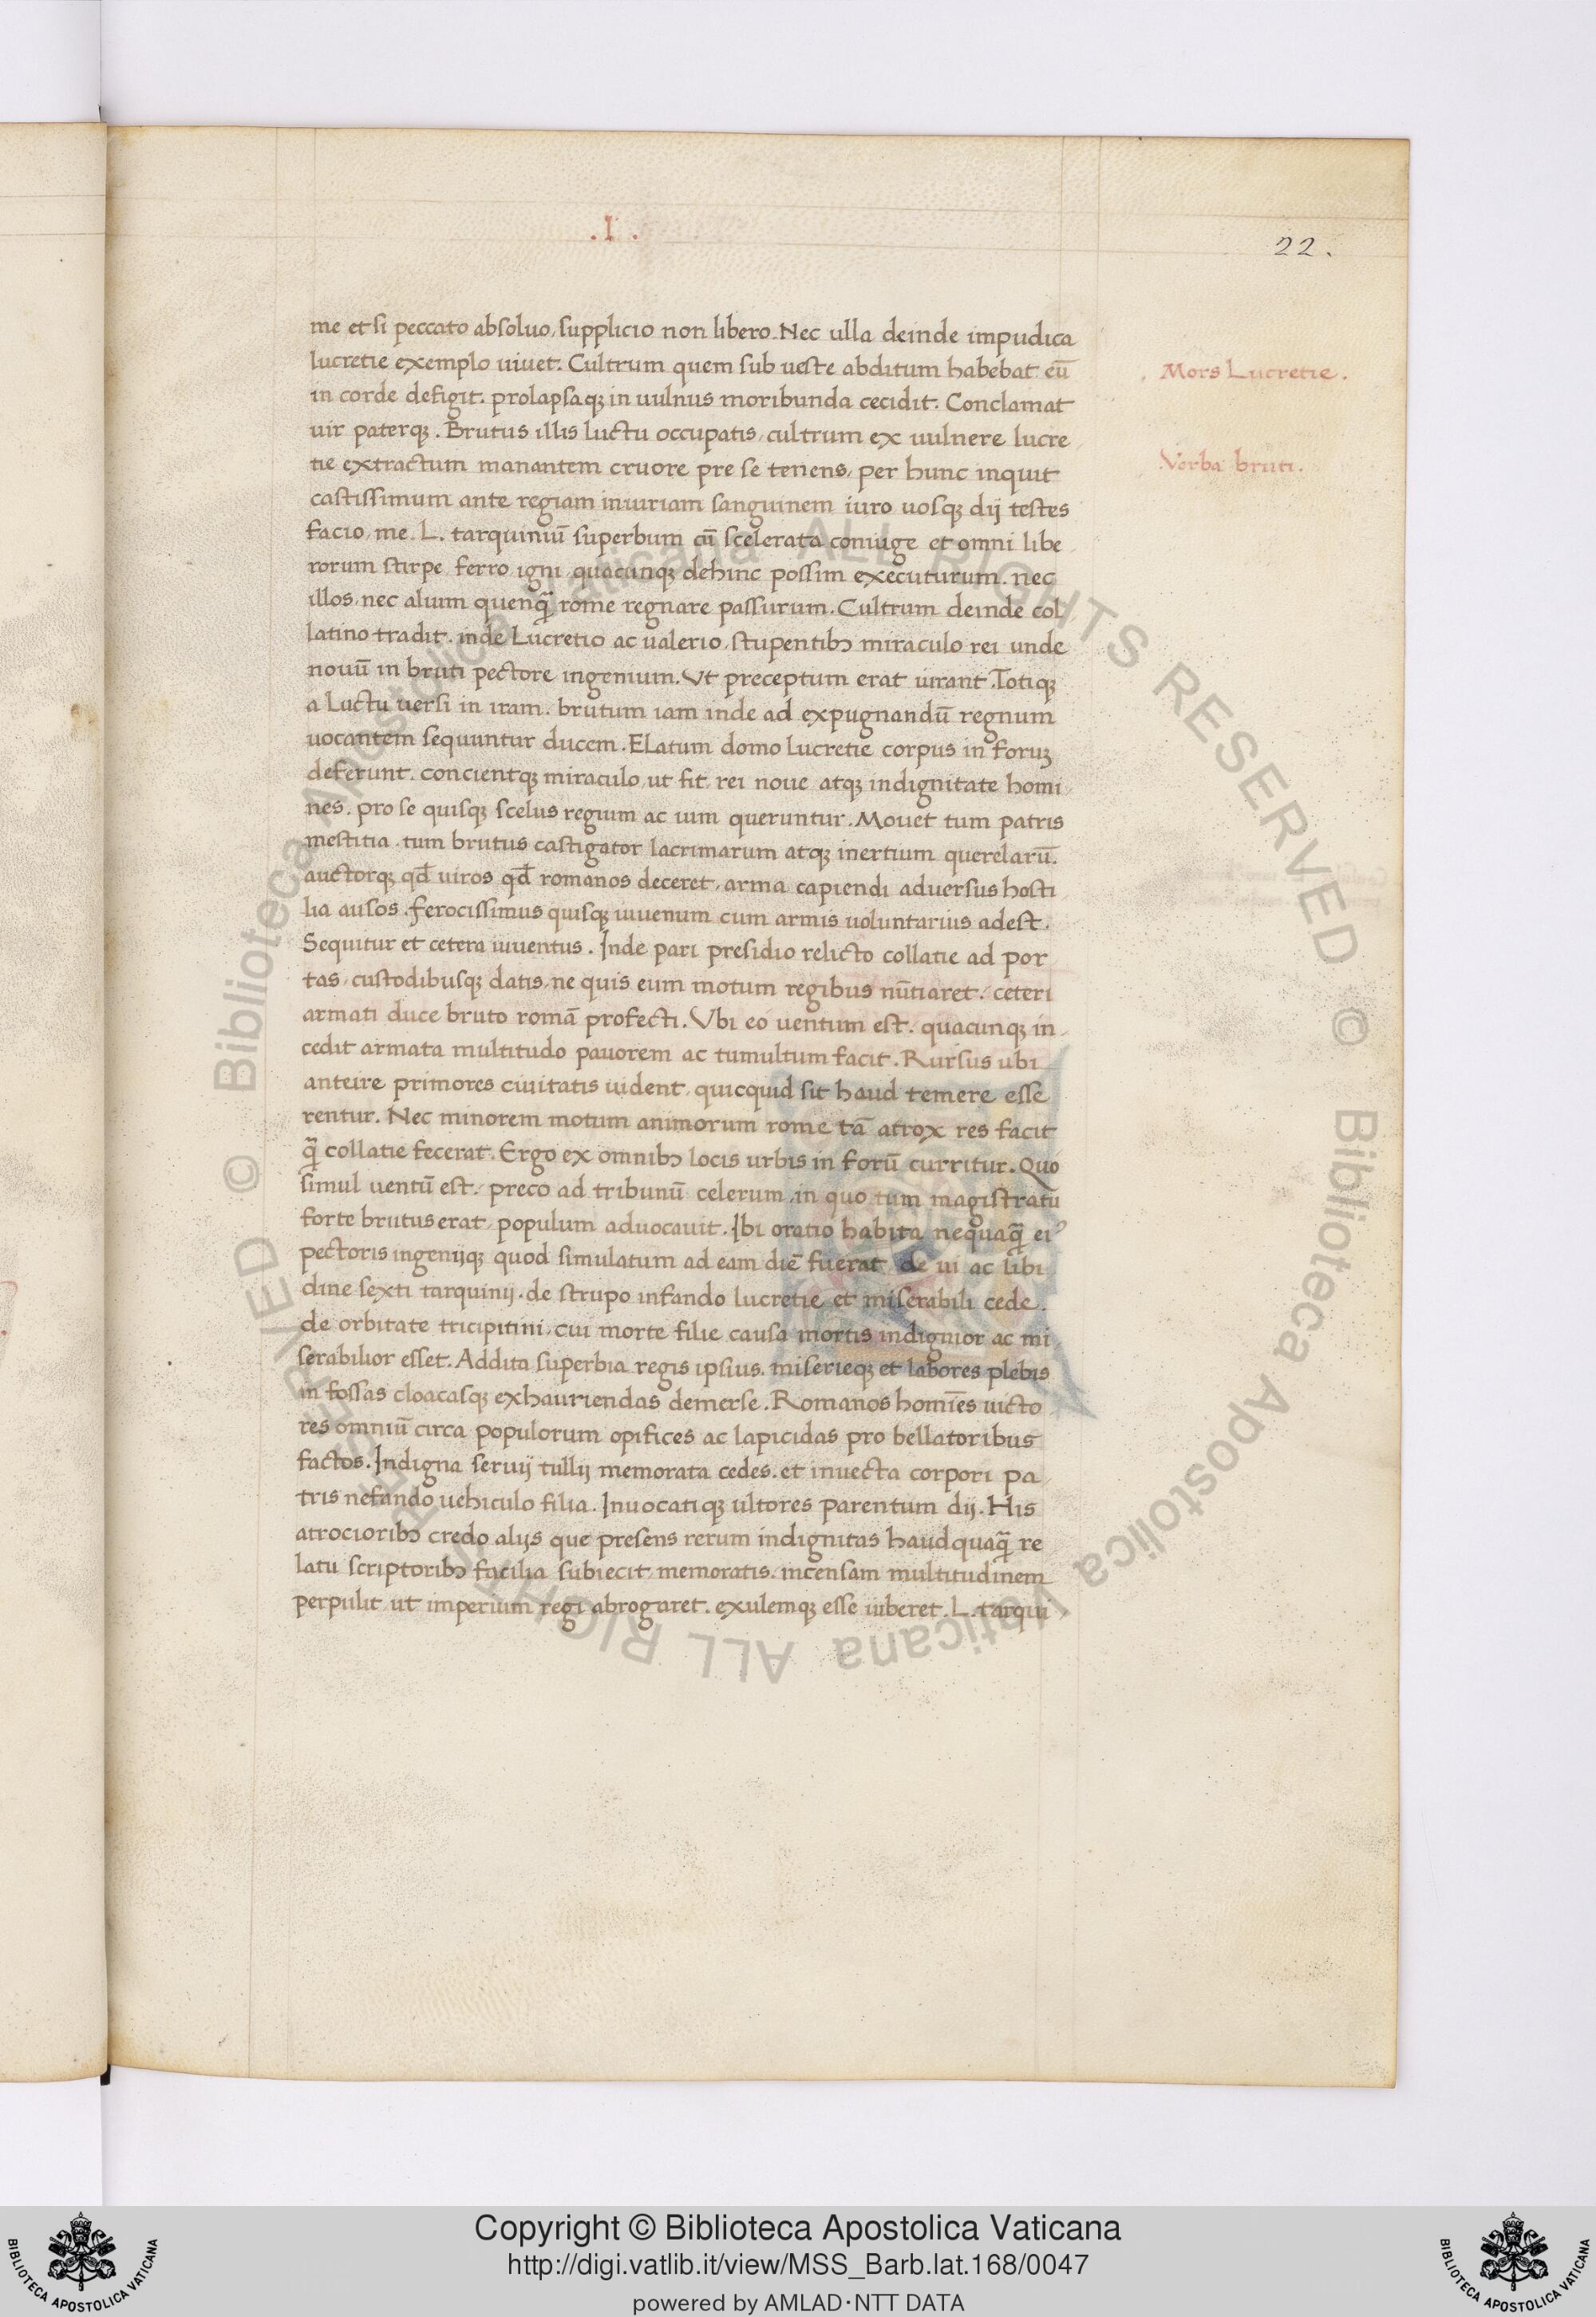 .I.
22.
me et si peccato absoluo, supplicio non libero. Nec ulla deinde impudica
lucretie exemplo uiuet. Cultrum quem sub ueste abditum habebat eū
in corde defigit. prolapsaqꝫ in uulnus moribunda cecidit. Conclamat
uir paterqꝫ. Brutus illis luctu occupatis, cultrum ex uulnere lucre
tie extractum manantem cruore pre se tenens, per hunc inquit
castissimum ante regiam iniuriam sanguinem iuro uosqꝫ dij testes
facio, me. L. tarquiniū superbum cū scelerata coniuge et omni libe
rorum stirpe ferro igni quacunqꝫ dehinc possim executurum. nec
illos, nec alium quenqꝫ̄ rome regnare passurum. Cultrum deinde col
latino tradit. inde Lucretio ac ualerio, stupentibꝫ miraculo rei unde
nouū in bruti pectore ingenium. Vt preceptum erat iurant. Totiqꝫ
a Luctu uersi in iram. brutum iam inde ad expugnandū regnum
uocantem sequuntur ducem. Elatum domo lucretie corpus in foruꝫ
deferunt. concientqꝫ miraculo, ut fit, rei noue atqꝫ indignitate homi
nes. pro se quisqꝫ scelus regium ac uim queruntur. Mouet tum patris
mestitia. tum brutus castigator lacrimarum atqꝫ inertium querelarū.
auctorqꝫ qđ uiros qđ romanos deceret, arma capiendi aduersus hosti
lia ausos. ferocissimus quisqꝫ iuuenum cum armis uoluntarius adest.
Sequitur et cetera iuuentus. Inde pari presidio relicto collatie ad por
tas, custodibusqꝫ datis, ne quis eum motum regibus nūtiaret. ceteri
armati duce bruto romā profecti. Vbi eo uentum est. quacunqꝫ in
cedit armata multitudo pauorem ac tumultum facit. Rursus ubi
anteire primores ciuitatis uident, quicquid sit haud temere esse
rentur. Nec minorem motum animorum rome tā atrox res facit
q̄ collatie fecerat. Ergo ex omnibꝫ locis urbis in forū curritur. Quo
simul uentū est. preco ad tribunū celerum, in quo tum magistratu
forte brutus erat, populum aduocauit. Ibi oratio habita nequaq̄ ei᾿
pectoris ingenijqꝫ quod simulatum ad eam diē fuerat de ui ac libi
dine sexti tarquinij. de strupo infando lucretie et miserabili cede.
de orbitate tricipitini, cui morte filie causa mortis indignior ac mi
serabilior esset. Addita superbia regis ipsius. miserieqꝫ et labores plebis
in fossas cloacasqꝫ exhauriendas demerse. Romanos homīes uicto
res omniū circa populorum opifices ac lapicidas pro bellatoribus
factos. Indigna seruij tullij memorata cedes. et inuecta corpori pa
tris nefando uehiculo filia. Inuocatiqꝫ ultores parentum dij. His
atrocioribꝫ credo alijs que presens rerum indignitas haudquaq̄ re
latu scriptoribꝫ facilia subiecit memoratis. incensam multitudinem
perpulit ut imperium regi abrogaret. exulemqꝫ esse iuberet. L. tarqui
. Mors Lucretie.
.Verba bruti.
© Biblioteca Apostolica Vaticana ALL RIGHTS RESERVED © Biblioteca Apostolica Vaticana ALL RIGHTS RESERVED
Copyright © Biblioteca Apostolica Vaticana
http://digi.vatlib.it/view/MSS_Barb.lat.168/0047
powered by AMLAD·NTT DATA
BIBLIOTECA APOSTOLICA VATICANA
BIBLIOTECA APOSTOLICA VATICANA